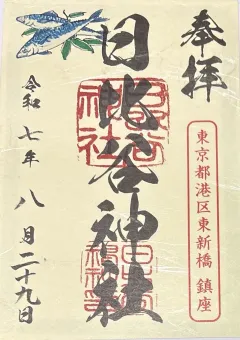 奉拝
東京都港区東新橋 鎮座
日比谷神社
令和七年八月二十九日